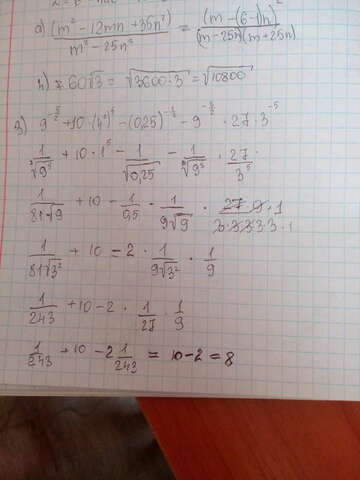 а) (m² − 12mn + 36n²) / (m² − 25n²) = (m − (6 − )n)² / (m − 25n)(m + 25n)
= 60√3 = √3600·3 = √10800
9^(-5/2) + 10 · (4²)⁰ − (0,25)^(-1/2) − 9^(-3/2) · 27 · 3^(-5)
1/√9⁵ + 10 · 1⁵ − 1/√0,25 − 1/√9³ · 27/3⁵ ·
1/81√9 + 10 − 1/0,5 · 1/9√9 · 27 · 9 · 1
1/81√3² + 10 = 2 · 1/9√3² · 1/9
1/243 + 10 − 2 · 1/27 · 1/9
1/243 + 10 − 2 1/243 = 10 − 2 = 8